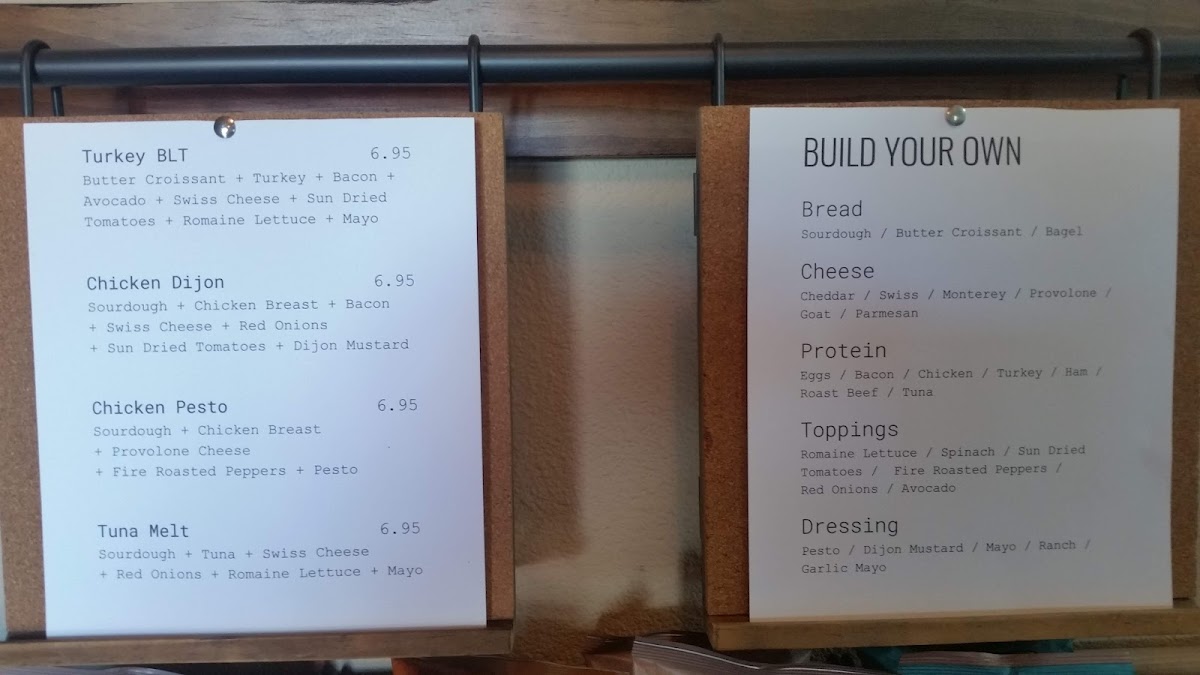 Turkey BLT 6.95
Butter Croissant + Turkey + Bacon +
Avocado + Swiss Cheese + Sun Dried
Tomatoes + Romaine Lettuce + Mayo
Chicken Dijon 6.95
Sourdough + Chicken Breast + Bacon
+ Swiss Cheese + Red Onions
+ Sun Dried Tomatoes + Dijon Mustard
Chicken Pesto 6.95
Sourdough + Chicken Breast
+ Provolone Cheese
+ Fire Roasted Peppers + Pesto
Tuna Melt 6.95
Sourdough + Tuna + Swiss Cheese
+ Red Onions + Romaine Lettuce + Mayo
BUILD YOUR OWN
Bread
Sourdough / Butter Croissant / Bagel
Cheese
Cheddar / Swiss / Monterey / Provolone /
Goat / Parmesan
Protein
Eggs / Bacon / Chicken / Turkey / Ham /
Roast Beef / Tuna
Toppings
Romaine Lettuce / Spinach / Sun Dried
Tomatoes / Fire Roasted Peppers /
Red Onions / Avocado
Dressing
Pesto / Dijon Mustard / Mayo / Ranch /
Garlic Mayo